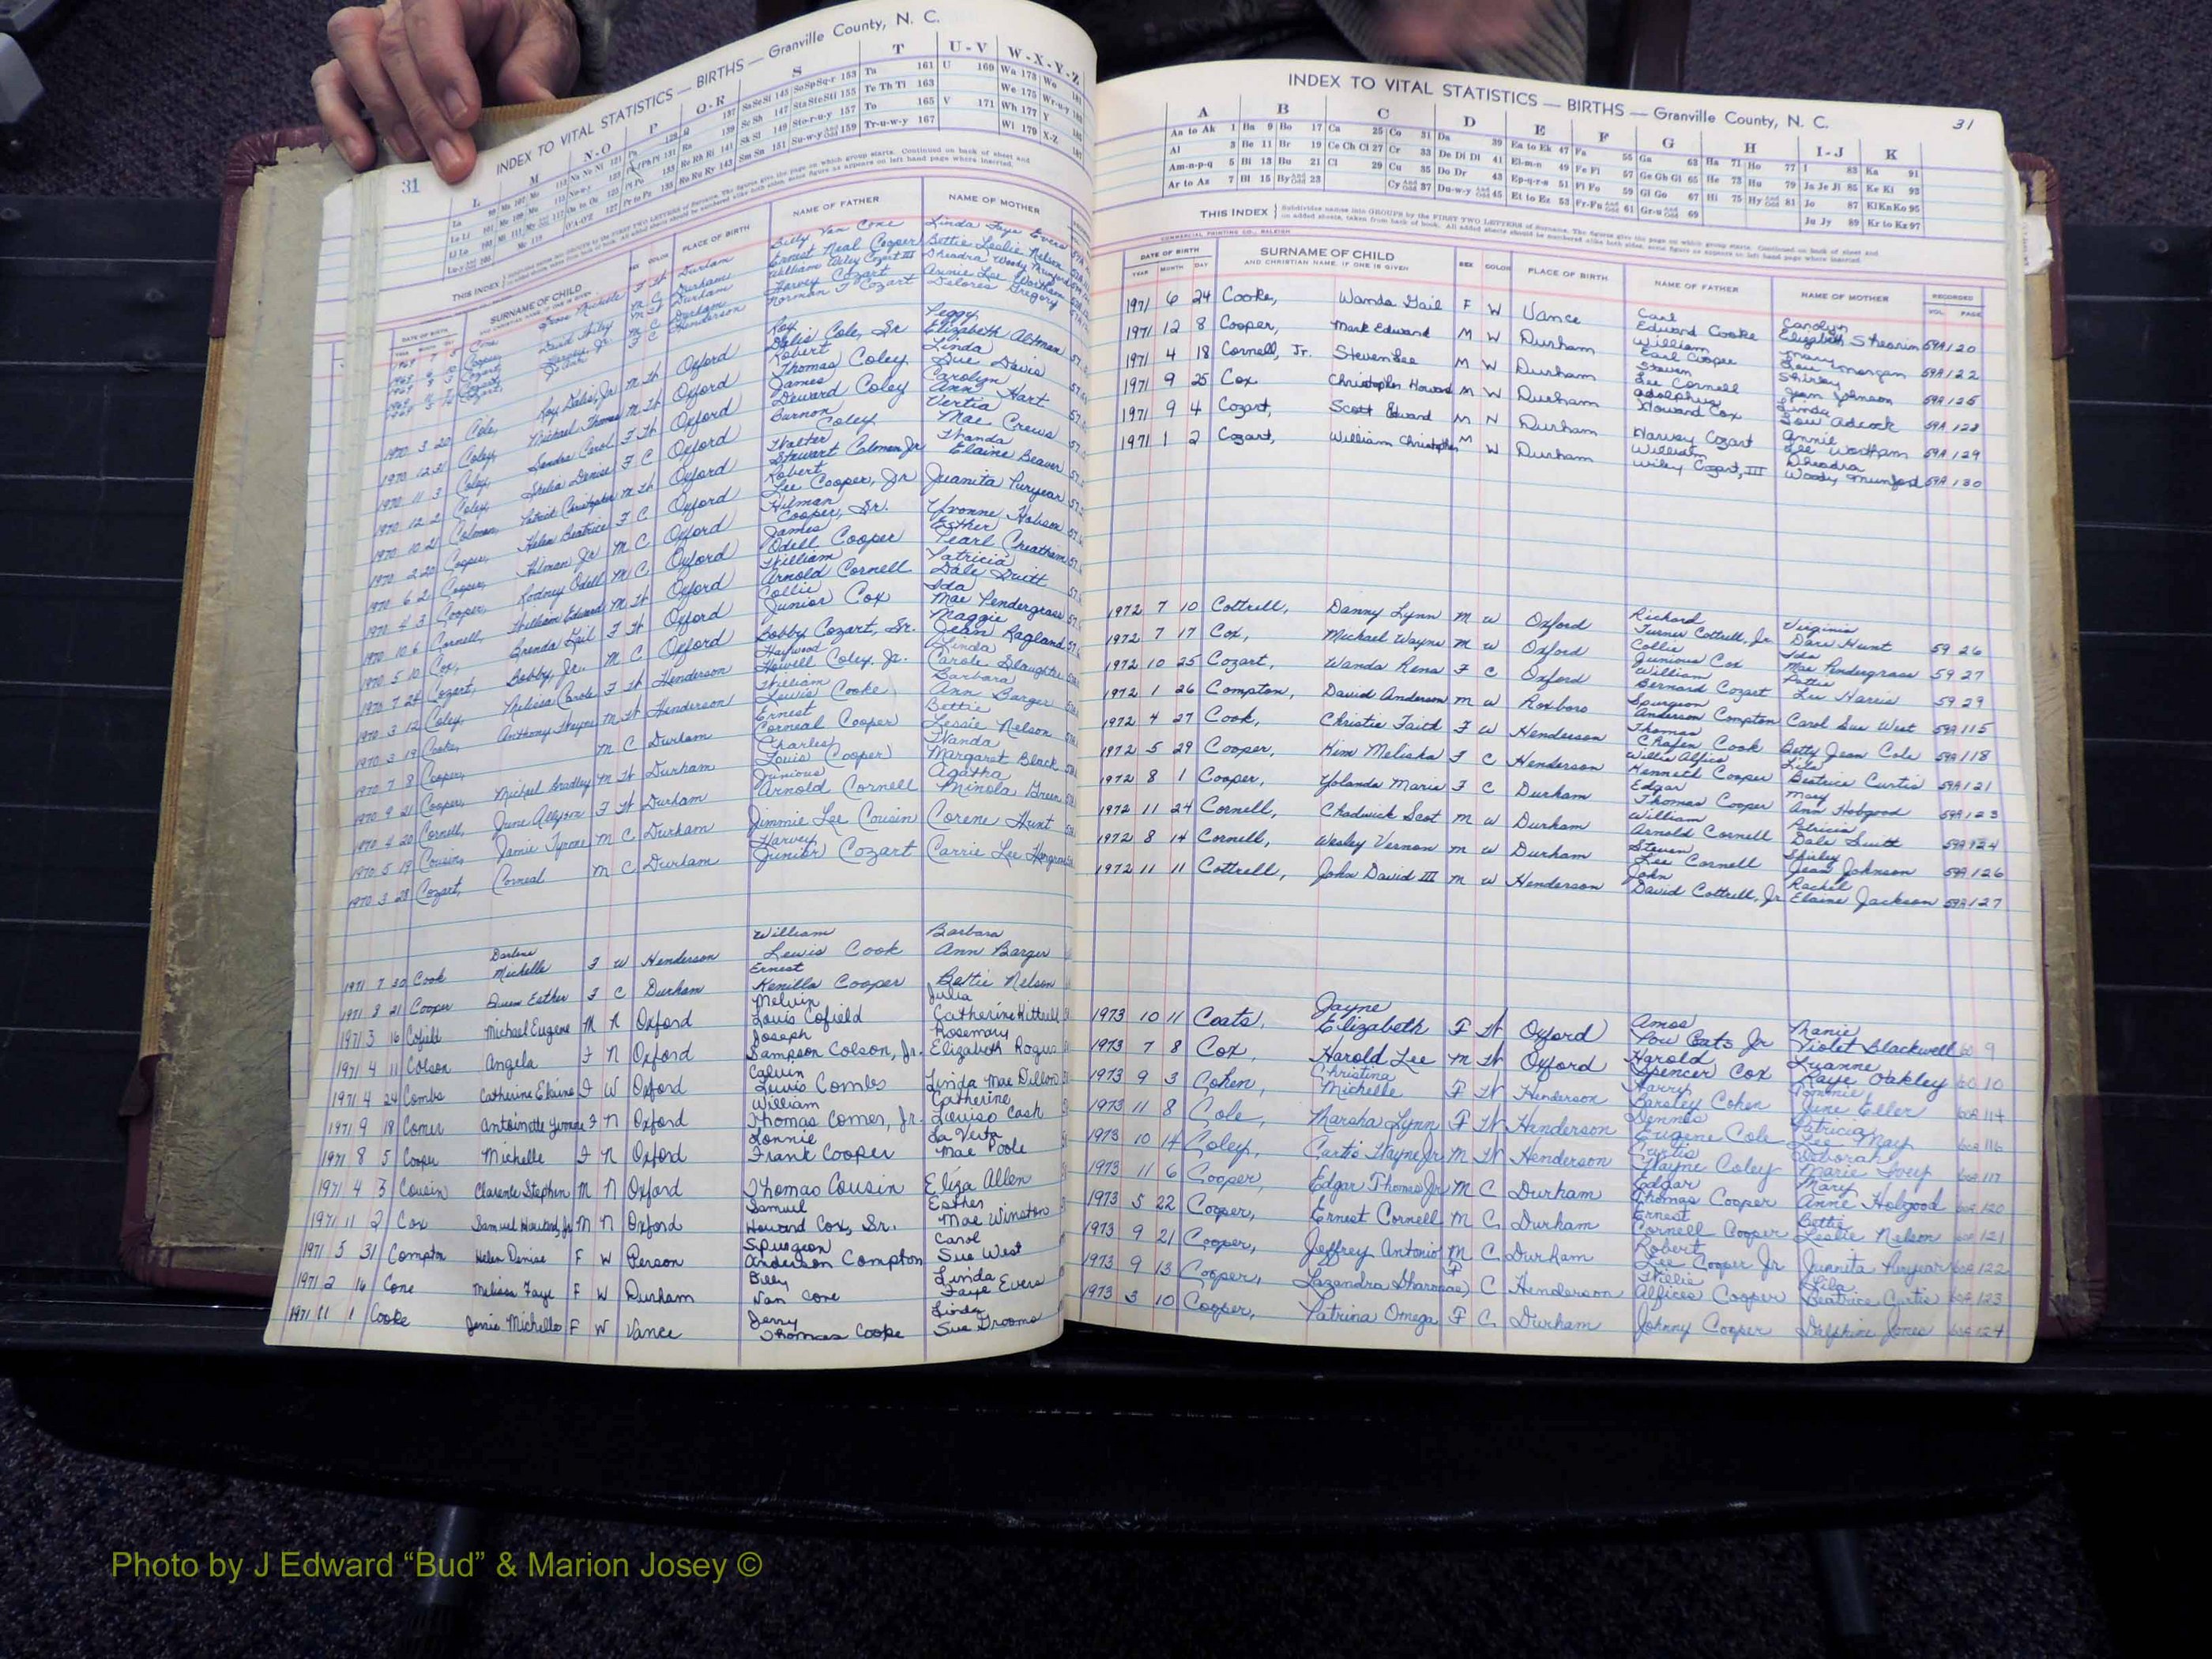 31
INDEX TO VITAL STATISTICS — BIRTHS — Granville County, N. C.
L M N-O P Q-R S T U-V W-X-Y-Z
THIS INDEX
DATE OF BIRTH SURNAME OF CHILD SEX COLOR PLACE OF BIRTH NAME OF FATHER NAME OF MOTHER
Cone F W Durham Billy Van Cone Linda Faye Evers
Cooper, M C Durham Ernest Neal Cooper Bettie Leslie Nelson
Cozart, M W Durham William Wiley Cozart III
Cozart, Harvey, Jr. M C Durham Harvey Cozart Annie Lee Wortham
Cozart, F C Henderson Norman T Cozart Delores Gregory
1970 3 20 Cole, Roy Dalis, Jr M W Oxford Roy Dalis Cole, Sr Peggy Elizabeth Altman
1970 12 31 Coley, Michael Thomas M W Oxford Robert Thomas Coley Linda Sue Davis
1970 11 3 Coley, Sandra Carol F W Oxford James Deward Coley Carolyn Ann Hart
1970 12 2 Coley, Shelia Denise F C Oxford Burnon Coley Vertia Mae Crews
1970 10 21 Colman, Patrick Christopher M W Oxford Walter Stewart Colman Jr Wanda Elaine Beaver
1970 2 20 Cooper, Helen Beatrice F C Oxford Robert Lee Cooper, Jr Juanita Puryear
1970 6 2 Cooper, Hilman Jr M C Oxford Hilman Cooper, Sr. Yvonne Hobson
1970 4 3 Cooper, Rodney Odell M C Oxford James Odell Cooper Esther Pearl Cheatham
1970 10 6 Cornell, William Edward M W Oxford William Arnold Cornell Patricia Dale Suitt
1970 5 10 Cox, Brenda Gail F W Oxford Collie Junior Cox Ida Mae Pendergrass
1970 7 24 Cozart, Bobby, Jr. M C Oxford Bobby Cozart, Sr. Maggie Jean Ragland
1970 3 12 Coley, Melissa Carole F W Henderson Haywood Howell Coley, Jr. Linda Carole Slaughter
1970 3 19 Cooke, Anthony Wayne M W Henderson William Lewis Cooke Barbara Ann Barger
1970 7 8 Cooper, M C Durham Ernest Corneal Cooper Bettie Lessie Nelson
1970 9 21 Cooper, Michael Bradley M W Durham Charles Louis Cooper Wanda Margaret Black
1970 4 20 Cornell, June Allyson F W Durham Junious Arnold Cornell Agatha Minola Green
1970 5 19 Cousin, Jamie Tyrone M C Durham Jimmie Lee Cousin Corene Hunt
1970 3 28 Cozart, Corneal M C Durham Harvey Junior Cozart Carrie Lee
1971 7 30 Cook Darlene Michelle F W Henderson William Lewis Cook Barbara Ann Barger
1971 3 21 Cooper Queen Esther F C Durham Ernest Kenilla Cooper Bettie Nelson
1971 3 16 Cofield Michael Eugene M N Oxford Melvin Louis Cofield Julia Catherine Kittrell
1971 4 11 Colson Angela F N Oxford Joseph Sampson Colson, Jr. Rosemary Elizabeth Rogus
1971 4 24 Combs Catherine Elaine F W Oxford Calvin Lewis Combs Linda Mae Dillon
1971 9 18 Comer Antoinette Yvonne F N Oxford William Thomas Comer, Jr. Catherine Louise Cash
1971 8 5 Cooper Michelle F N Oxford Lonnie Frank Cooper La Vesta Mae Poole
1971 4 3 Cousin Clarence Stephen M N Oxford Thomas Cousin Eliza Allen
1971 11 2 Cox Samuel Howard, Jr M N Oxford Samuel Howard Cox, Sr. Esther Mae Winston
1971 5 31 Compton Helen Denise F W Person Spurgeon Anderson Compton Carol Sue West
1971 2 16 Cone Melissa Faye F W Durham Billy Van Cone Linda Faye Evers
1971 11 1 Cooke Jenie Michelle F W Vance Jerry Thomas Cooke Linda Sue Grooms
INDEX TO VITAL STATISTICS — BIRTHS — Granville County, N. C.
31
A B C D E F G H I-J K
Aa to Ak 1 Ba 9 Bo 17 Ca 25 Co 31 Da 39 Ea to Ek 47 Fa 55 Ga 63 Ha 71 Ho 77 I 83 Ka 91
Al 3 Be 11 Br 19 Ce Ch Cl 27 Cr 33 De Di Dl 41 El-m-n 49 Fe Fi 57 Ge Gh Gl 65 He 73 Hu 79 Ja Je Ji 85 Ke Ki 93
Am-n-p-q 5 Bi 13 Bu 21 Cl 29 Cu 35 Do Dr 43 Ep-q-r-s 51 Fl Fo 59 Gi Go 67 Hi 75 Hy And Odd 81 Jo 87 Kl Kn Ko 95
Ar to Az 7 Bl 15 By And Odd 23 Cy And Odd 37 Du-w-y And Odd 45 Et to Ez 53 Fr-Fu And Odd 61 Gr-u And Odd 69 Ju Jy 89 Kr to Kz 97
THIS INDEX Subdivides names into GROUPS by the FIRST TWO LETTERS of Surname. The figures give the page on which group starts. Continued on back of sheet and
on added sheets, taken from back of book. All added sheets should be numbered alike both sides, same figure as appears on left hand page where inserted.
COMMERCIAL PRINTING CO., RALEIGH
DATE OF BIRTH SURNAME OF CHILD SEX COLOR PLACE OF BIRTH NAME OF FATHER NAME OF MOTHER RECORDED
YEAR MONTH DAY AND CHRISTIAN NAME, IF ONE IS GIVEN VOL. PAGE
1971 6 24 Cooke, Wanda Gail F W Vance Carl Edward Cooke Carolyn Elizabeth Shearin 59A 120
1971 12 8 Cooper, Mark Edward M W Durham William Earl Cooper Mary Lou Morgan 59A 122
1971 4 18 Cornell, Jr. Steven Lee M W Durham Steven Lee Cornell Shirley Jean Johnson 59A 125
1971 9 25 Cox Christopher Howard M W Durham Adolphus Howard Cox Linda Lou Adcock 59A 128
1971 9 4 Cozart, Scott Edward M N Durham Harvey Cozart Annie Lee Wortham 59A 129
1971 1 2 Cozart, William Christopher M W Durham William Wiley Cozart, III Dheadra Woody Munford 59A 130
1972 7 10 Cottrell, Danny Lynn M W Oxford Richard Turner Cottrell, Jr Virginia Dare Hunt 59 26
1972 7 17 Cox, Michael Wayne M W Oxford Collie Junious Cox Ida Mae Pendergrass 59 27
1972 10 25 Cozart, Wanda Rena F C Oxford William Bernard Cozart Pattie Lee Harris 59 29
1972 1 26 Compton, David Anderson M W Roxboro Spurgeon Anderson Compton Carol Sue West 59A 115
1972 4 27 Cook, Christie Faith F W Henderson Thomas Chafen Cook Betty Jean Cole 59A 118
1972 5 29 Cooper, Kim Meliska F C Henderson Willie Alfice Kenneth Cooper Lila Beatrice Curtis 59A 121
1972 8 1 Cooper, Yolanda Maria F C Durham Edgar Thomas Cooper Mary Ann Hobgood 59A 123
1972 11 24 Cornell, Chadwick Scot M W Durham William Arnold Cornell Patricia Dale Suitt 59A 124
1972 8 14 Cornell, Wesley Vernon M W Durham Steven Lee Cornell Shirley Jean Johnson 59A 126
1972 11 11 Cottrell, John David III M W Henderson John David Cottrell, Jr Rachel Elaine Jackson 59A 127
1973 10 11 Coats, Jayne Elizabeth F W Oxford Amos Low Coats Jr Nanie Violet Blackwell 60 9
1973 7 8 Cox, Harold Lee M W Oxford Harold Spencer Cox Luanne Faye Oakley 60 10
1973 9 3 Cohen, Christina Michelle F W Henderson Harry Barsley Cohen Tommie June Eller 60A 114
1973 11 8 Cole, Marsha Lynn F W Henderson Dennis Eugene Cole Patricia Lee May 60A 116
1973 10 14 Coley, Curtis Wayne Jr M W Henderson Curtis Wayne Coley Deborah Marie Ivey 60A 117
1973 11 6 Cooper, Edgar Thomas Jr M C Durham Edgar Thomas Cooper Mary Anne Hobgood 60A 120
1973 5 22 Cooper, Ernest Cornell M C Durham Ernest Cornell Cooper Bettie Leslie Nelson 60A 121
1973 9 21 Cooper, Jeffrey Antonio M C Durham Robert Lee Cooper Jr Juanita Puryear 60A 122
1973 9 13 Cooper, Lazandra F C Henderson Willie Alfices Cooper Lila Beatrice Curtis 60A 123
1973 3 10 Cooper, Patrina Omega F C Durham Johnny Cooper Delphine Jones 60A 124
Photo by J Edward “Bud” & Marion Josey ©